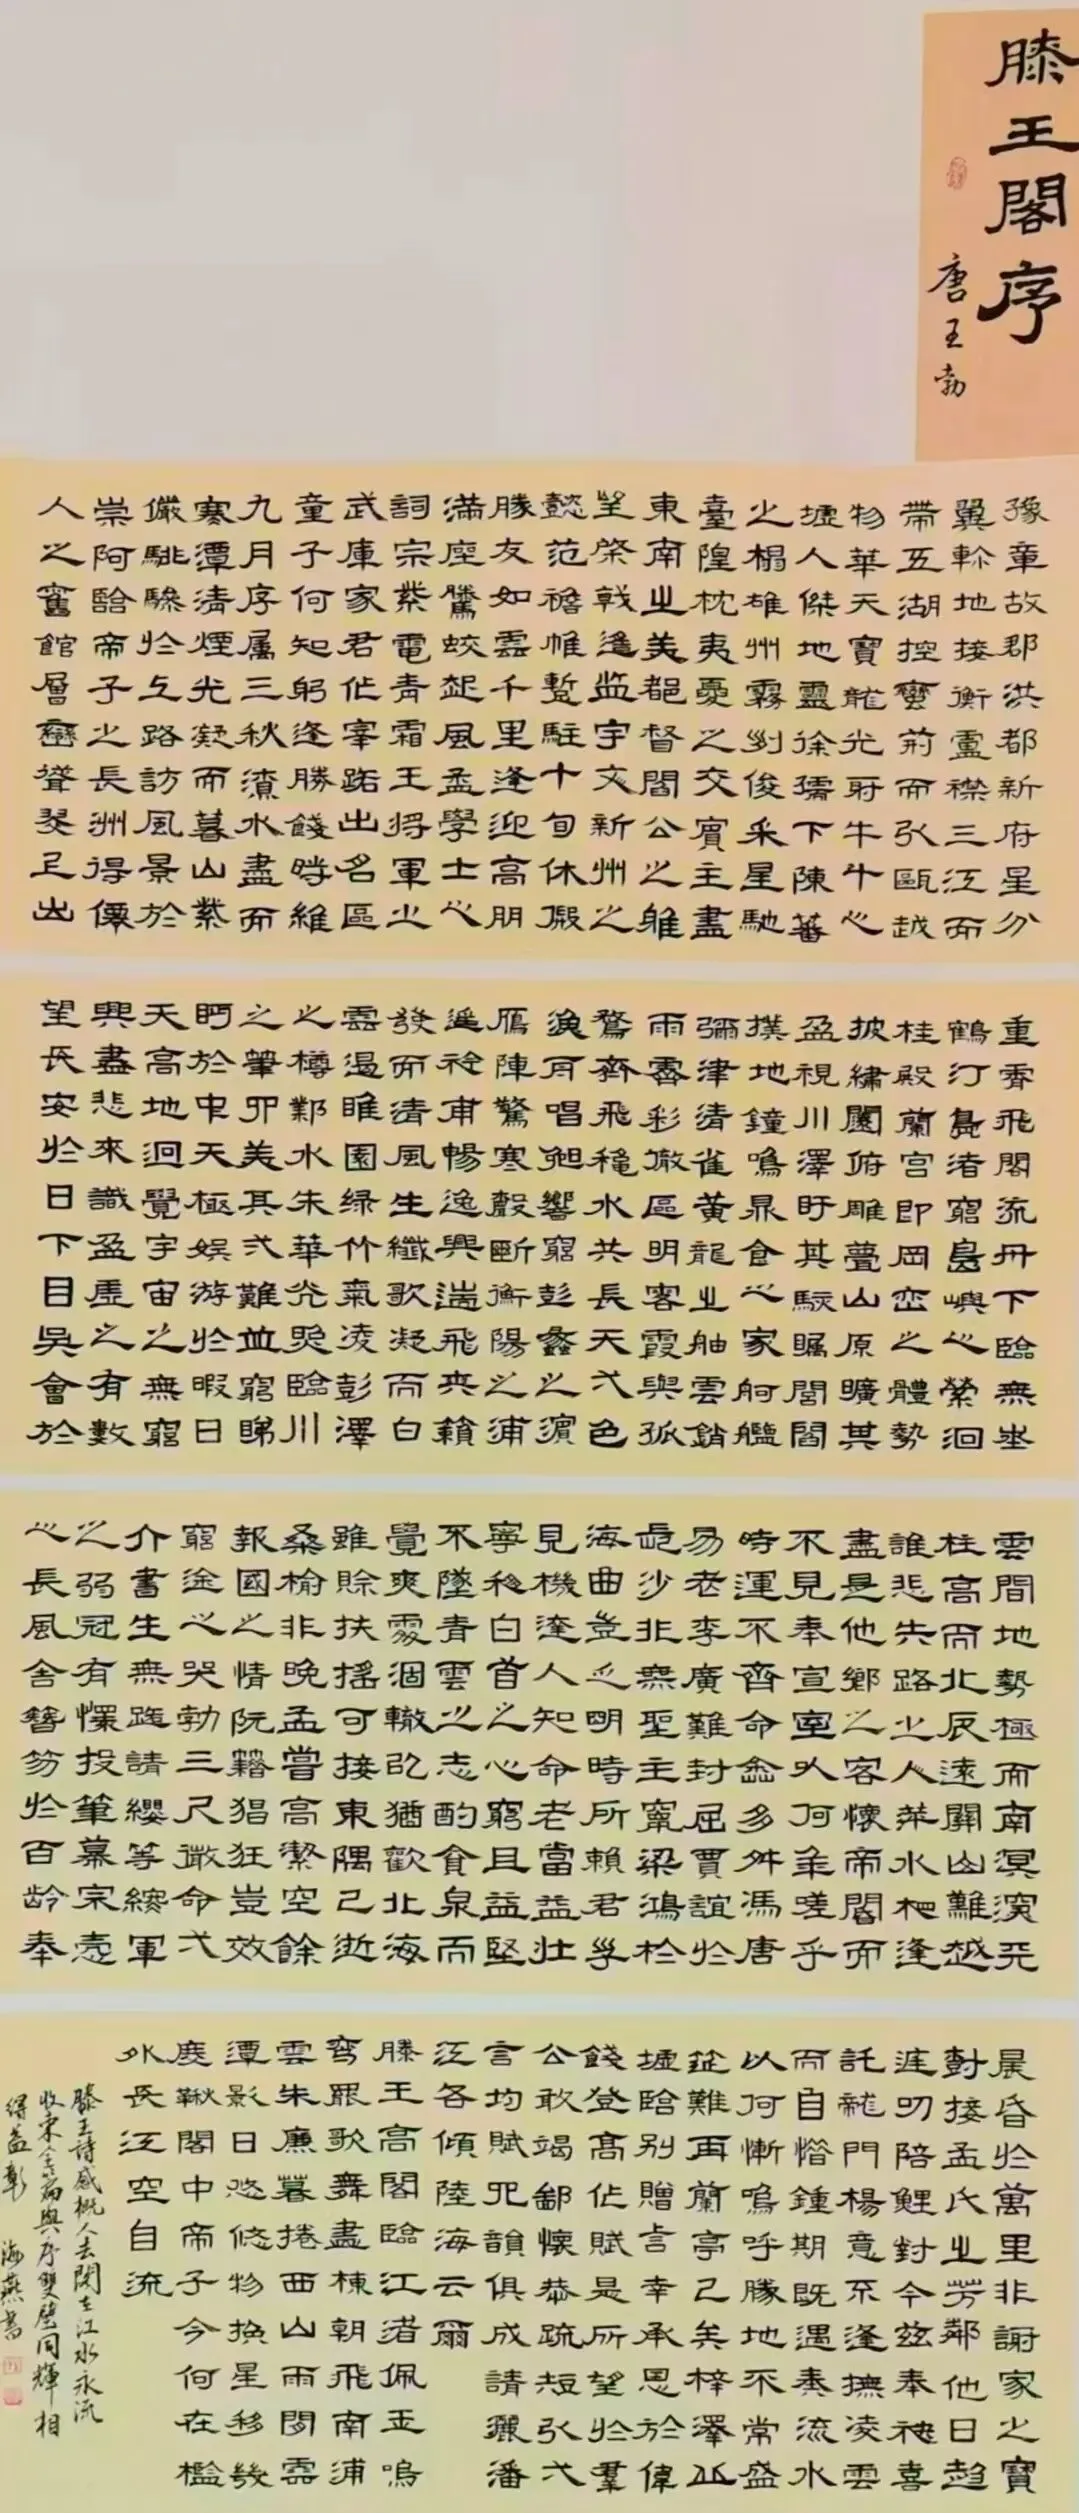 滕王閣序
唐王勃
豫章故郡洪都新府星分
翼軫地接衡廬襟三江而
帶五湖控蠻荊而引甌越
物華天寶龍光射牛斗之
墟人傑地靈徐孺下陳蕃
之榻雄州霧列俊采星馳
臺隍枕夷夏之交賓主盡
東南之美都督閻公之雅
望棨戟遙監宇文新州之
懿范襜帷暫駐十旬休假
勝友如雲千里逢迎高朋
滿座騰蛟起風孟學士之
詞宗紫電青霜王將軍之
武庫家君作宰路出名區
童子何知躬逢勝餞時維
九月序屬三秋潦水盡而
寒潭清煙光凝而暮山紫
儼騑驂於上路訪風景於
崇阿臨帝子之長洲得僊
人之舊館層巒聳翠上出
重霄飛閣流丹下臨無地
鶴汀鳧渚窮島嶼之縈洄
桂殿蘭宮即岡巒之體勢
披繡闥俯雕甍山原曠其
盈視川澤盱其駭矚閭閻
撲地鐘鳴鼎食之家舸艦
彌津清雀黃龍之舳雲銷
雨霽彩徹區明落霞與孤
鶩齊飛穐水共長天弌色
漁舟唱晚響窮彭蠡之濱
雁陣驚寒聲斷衡陽之浦
遙襟甫暢逸興遄飛爽籟
發而清風生纖歌凝而白
雲遏睢園绿竹氣凌彭澤
之樽鄴水朱華光照臨川
之筆四美具弍難並窮睇
眄於中天極娛游於暇日
天高地迥覺宇宙之無窮
興盡悲來識盈虛之有數
望長安於日下目吳會於
雲間地勢極而南溟深天
柱高而北辰遠關山難越
誰悲失路之人萍水相逢
盡是他鄉之客懷帝閽而
不見奉宣室以何年嗟乎
時運不齊命途多舛馮唐
易老李廣難封屈賈誼於
長沙非無聖主竄梁鴻於
海曲豈乏明時所賴君子
見機達人知命老當益壯
寧移白首之心窮且益堅
不墜青雲之志酌貪泉而
覺爽處涸轍以猶歡北海
雖賒扶搖可接東隅已逝
桑榆非晚孟嘗高潔空餘
報國之情阮籍猖狂豈效
窮途之哭勃三尺微命弌
介書生無路請纓等終軍
之弱冠有懷投筆慕宗愨
之長風舍簪笏於百齡奉
晨昏於萬里非謝家之寶
樹接孟氏之芳鄰他日趨
庭叨陪鯉對今茲奉袂喜
託龍門楊意不逢撫凌雲
而自惜鍾期既遇奏流水
以何慚嗚呼勝地不常盛
筵難再蘭亭已矣梓澤丘
墟臨別贈言幸承恩於偉
餞登高作賦是所望於群
公敢竭鄙懷恭疏短引弌
言均賦四韻俱成請灑潘
江各傾陸海云爾
滕王高閣臨江渚佩玉鳴
鸞罷歌舞畫棟朝飛南浦
雲朱廉暮捲西山雨閑雲
潭影日悠悠物換星移幾
度秋閣中帝子今何在檻
外長江空自流
滕王詩感概人去閣在江水永流
收束全篇與序雙璧同輝相
得益彰 海燕書